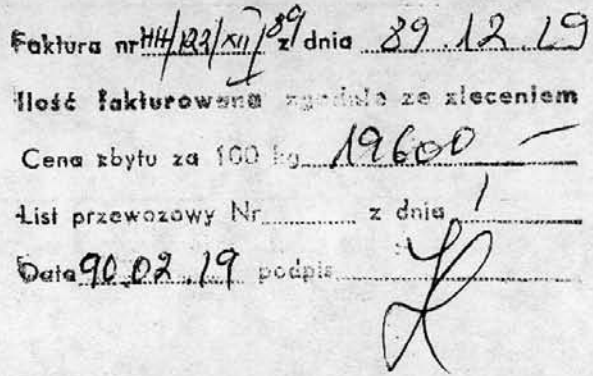 Faktura nr HH/122/XII/89 z dnia 89.12.19
Ilość fakturowana zgodnie ze zleceniem
Cena zbytu za 100 kg 19600 —
List przewozowy Nr z dnia /
Data 90.02.19 podpis